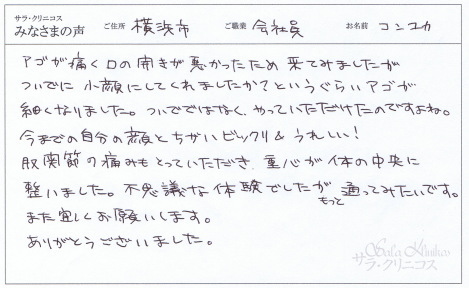 サラ・クリニコス
みなさまの声
ご住所 横浜市 ご職業 会社員 お名前 コンユカ
アゴが痛く口の開きが悪かったため 来てみましたが
ついでに 小顔にしてくれましたか？というぐらいアゴが
細くなりました。ついでではなく、やっていただけたのですよね。
今までの自分の顔とちがいビックリ＆うれしい！
股関節の痛みもとっていただき、重心が体の中央に
整いました。不思議な体験でしたが もっと 通ってみたいです。
また宜しくお願いします。
ありがとうございました。
Sala Klinikos
サラ・クリニコス